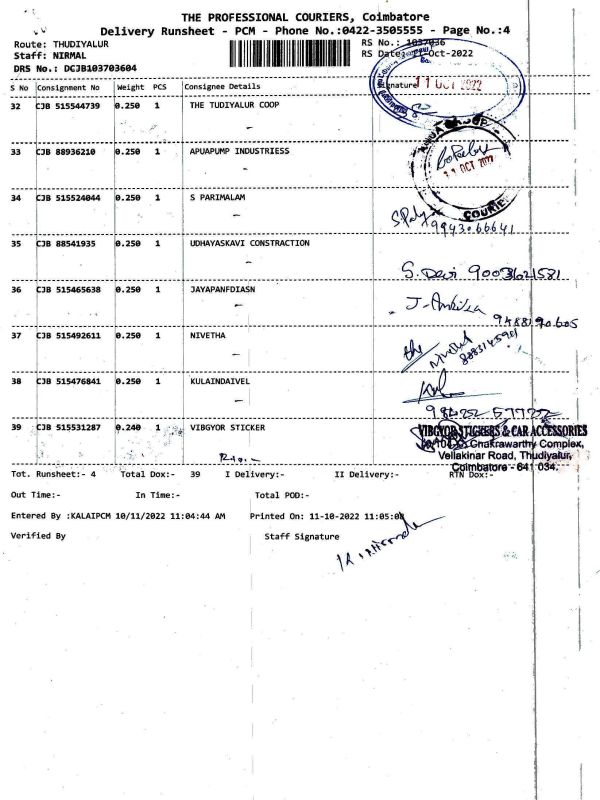 THE PROFESSIONAL COURIERS, Coimbatore
Delivery Runsheet - PCM - Phone No.:0422-3505555 - Page No.:4
Route: THUDIYALUR RS No.: 1037036
Staff: NIRMAL RS Date: 11-Oct-2022
DRS No.: DCJB103703604
11 OCT 2022
S No Consignment No Weight PCS Consignee Details Signature
32 CJB 515544739 0.250 1 THE TUDIYALUR COOP
33 CJB 88936210 0.250 1 APUAPUMP INDUSTRIESS
11 OCT 2022
COURIER
34 CJB 515524044 0.250 1 S PARIMALAM
9943066641
35 CJB 88541935 0.250 1 UDHAYASKAVI CONSTRACTION
S. Devi 9003621581
36 CJB 515465638 0.250 1 JAYAPANFDIASN
37 CJB 515492611 0.250 1 NIVETHA
38 CJB 515476841 0.250 1 KULAINDAIVEL
39 CJB 515531287 0.240 1 VIBGYOR STICKER
VIBGYOR STICKERS & CAR ACCESSORIES
Chakrawarthy Complex,
Vellakinar Road, Thudiyalur,
Coimbatore - 641 034.
Tot. Runsheet:- 4 Total Dox:- 39 I Delivery:- II Delivery:- RTN Dox:-
Out Time:- In Time:- Total POD:-
Entered By :KALAIPCM 10/11/2022 11:04:44 AM Printed On: 11-10-2022 11:05:00
Verified By Staff Signature